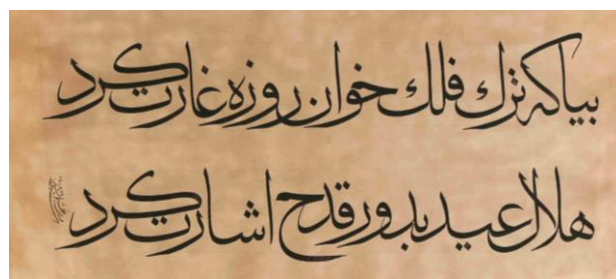 بیا که ترک فلک خوان روزه غارت کرد
هلال عید بدور قدح اشارت کرد